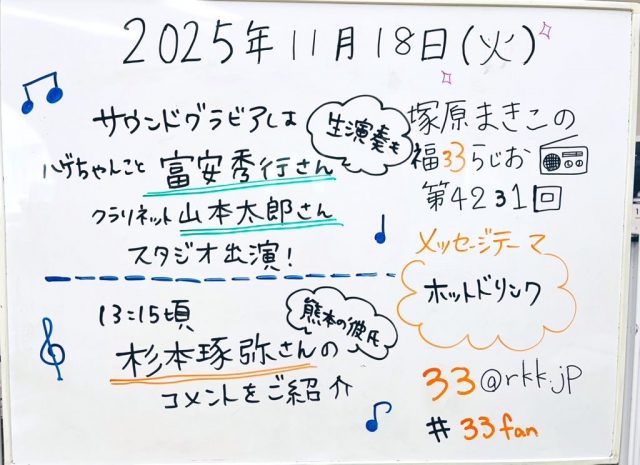 2025年11月18日(火)
サウンドグラビアしは
生演奏も
ハゲちゃんこと 富安秀行さん
クラリネット 山本太郎さん
スタジオ出演!
13:15頃
熊本の彼氏
杉本琢弥さんの
コメントをご紹介
塚原まきこの
福33らじお
第4231回
メッセージテーマ
ホットドリンク
33@rkk.jp
#33fan